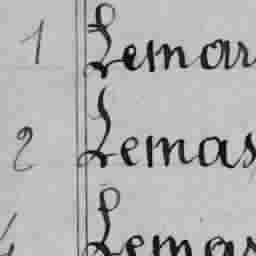 1 Lemar
2 Lemas
Lemas